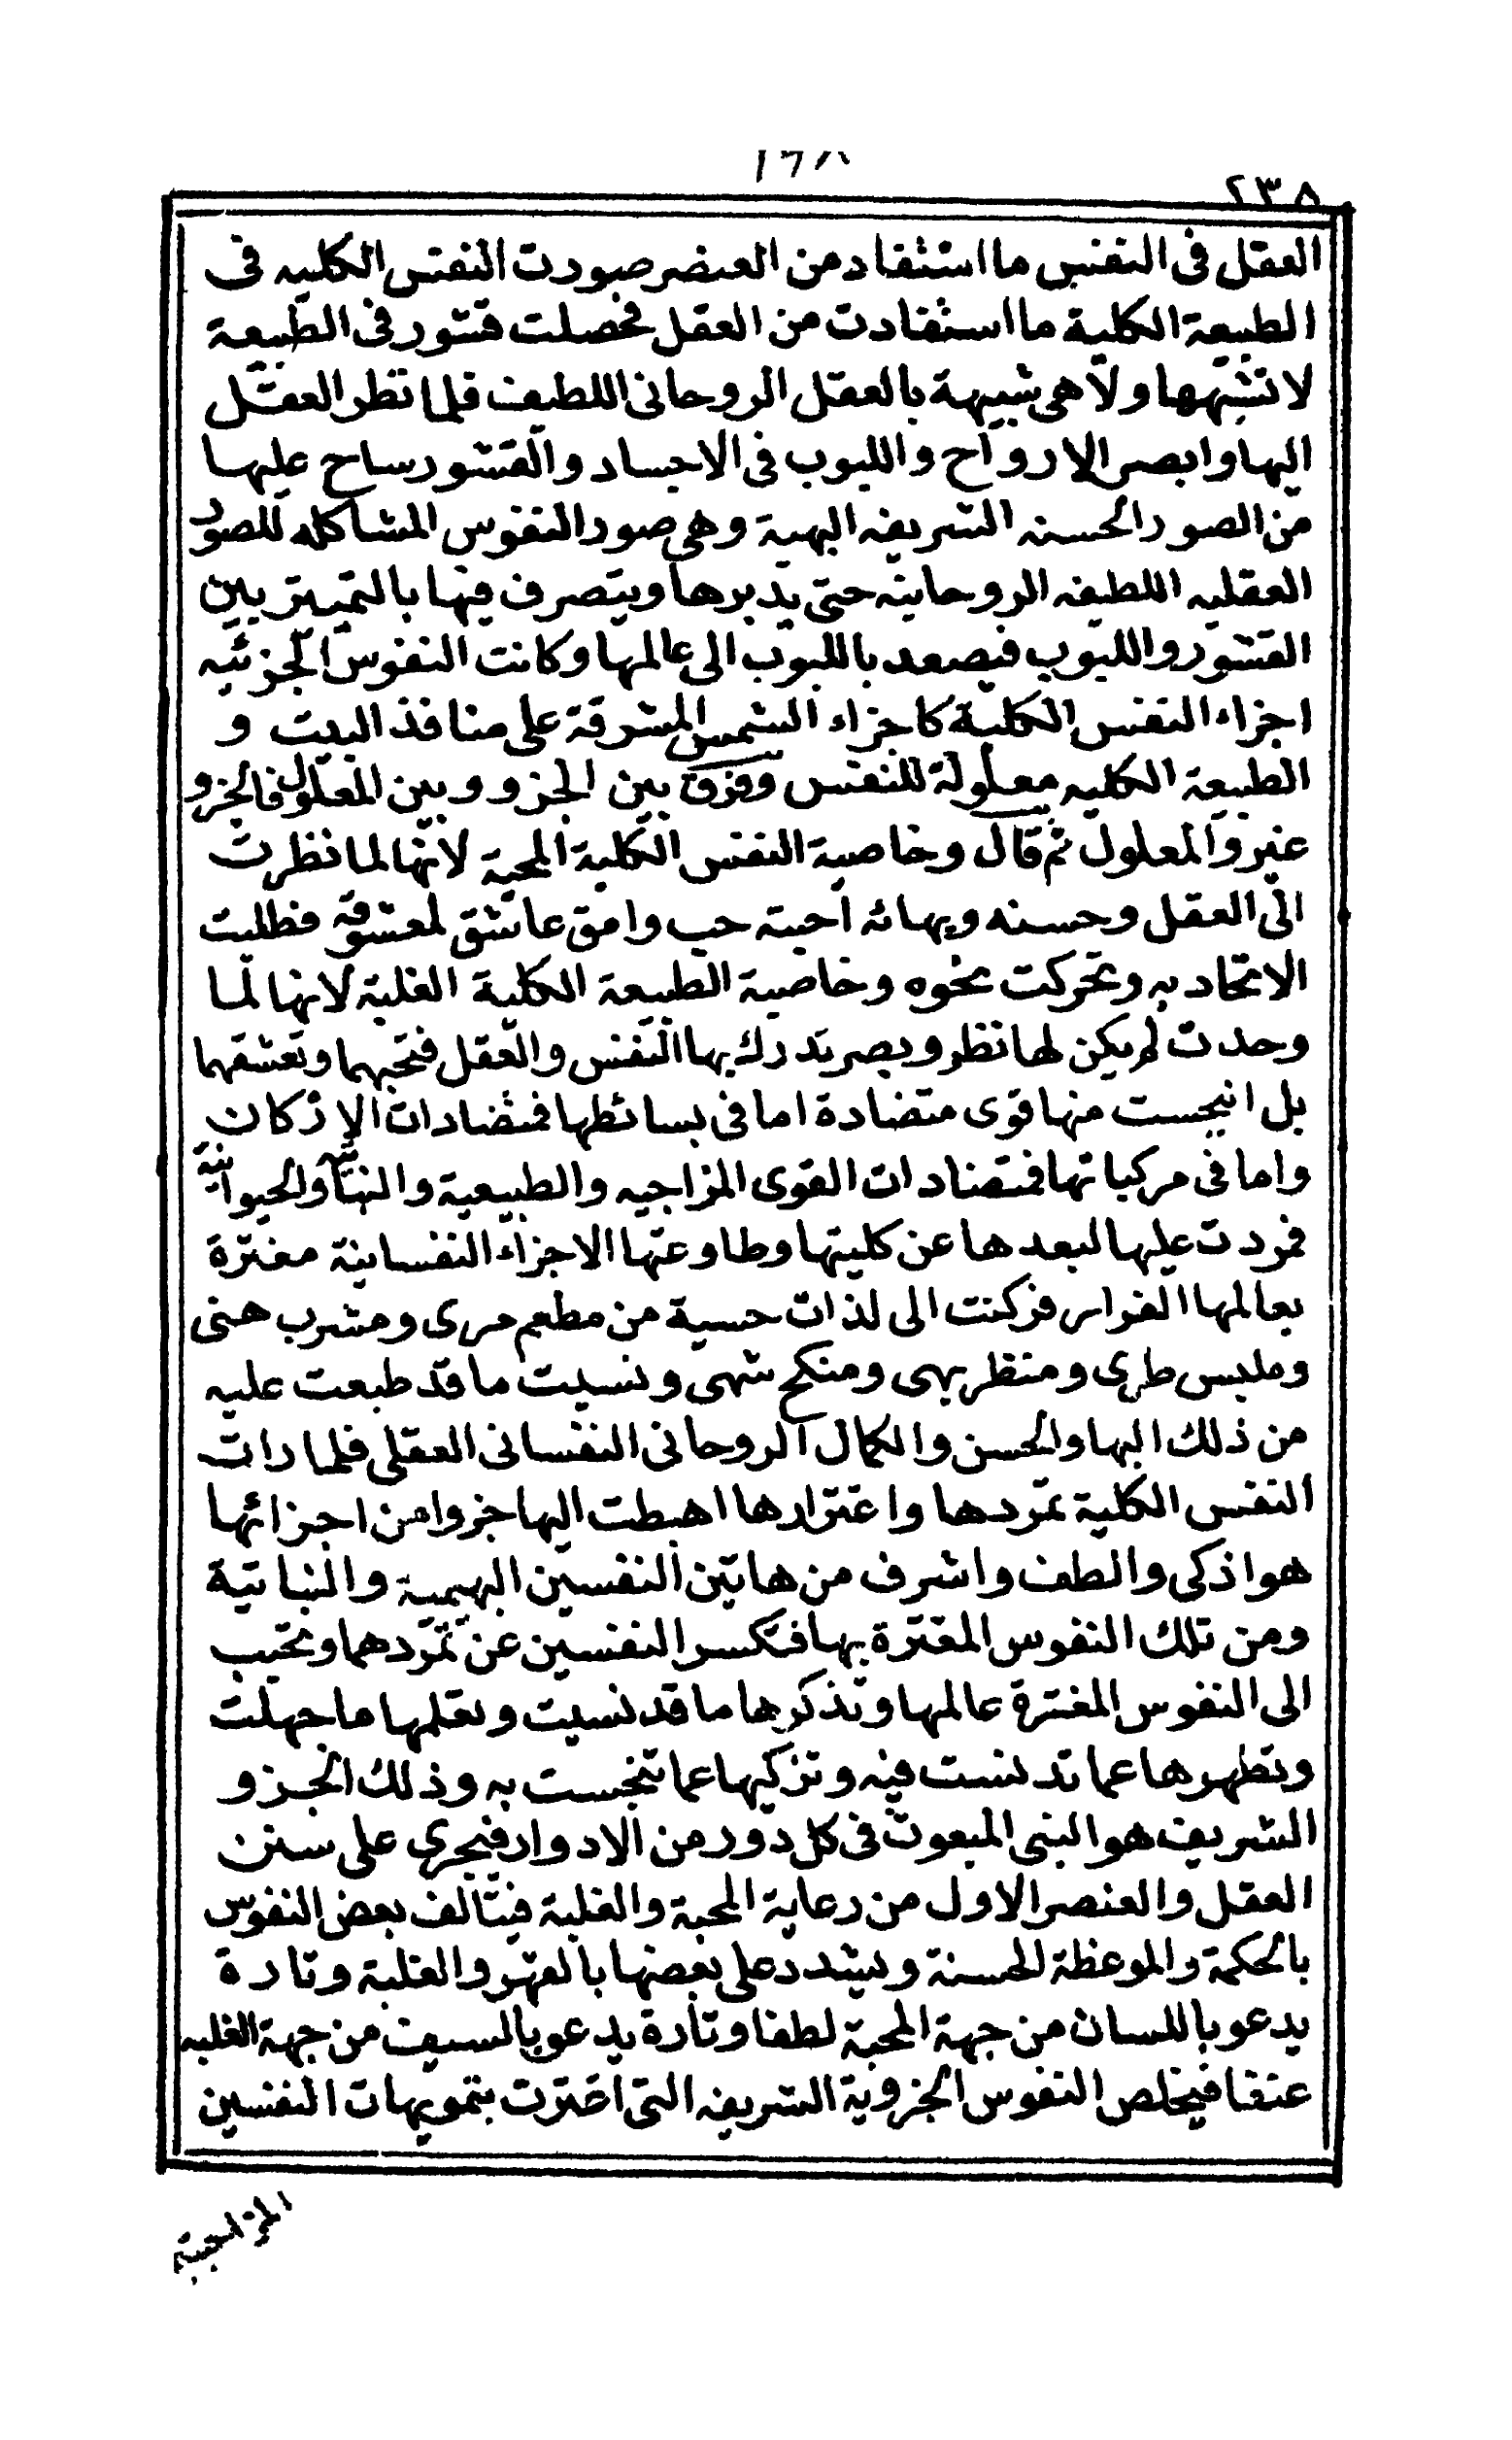 ٢٣٨
العقل فى النفس ما استفاد من العنصر صورت النفس الكليه فى
الطبيعة الكلية ما استفادت من العقل فحصلت قشور فى الطبيعة
لا تشبهها ولا هى شبيهة بالعقل الروحانى اللطيف فلما نظر العقل
اليها وابصر الارواح واللبوب فى الاجساد والقشور ساح عليها
من الصور الحسنه الشريفه البهية وهى صور النفوس المشاكله للصور
العقليه اللطيفه الروحانيه حتى يدبرها ويتصرف فيها بالتمييز بين
القشور واللبوب فيصعد باللبوب الى عالمها وكانت النفوس الجزئيه
اجزاء النفس الكلية كاجزاء الشمس المشرقة على منافذ البيت و
الطبيعة الكليه معلولة للنفس وفرق بين الجزو وبين المعلول فالجزو
غير والمعلول ثم قال وخاصية النفس الكلية المحبة لانها لما نظرت
الى العقل وحسنه وبهائه احبته حب وامق عاشق لمعشوقه فطلبت
الاتحاد به وتحركت نحوه وخاصية الطبيعة الكلية الغلبة لانها لما
وحدت لم يكن لها نظر وبصر تدرك بها النفس والعقل فتحبهما وتعشقهما
بل انبجست منها قوى متضادة اما فى بسائطها فمتضادات الاركان
واما فى مركباتها فمتضادات القوى المزاجيه والطبيعية والنباتية والحيوانية
فمردت عليها لبعدها عن كليتها وطاوعتها الاجزاء النفسانية مغترة
بعالمها الغرار فركنت الى لذات حسية من مطعم مرى ومشرب هنى
وملبس طرى ومنظر بهى ومنكح شهى ونسيت ما قد طبعت عليه
من ذلك البها والحسن والكمال الروحانى النفسانى العقلى فلما رات
النفس الكلية تمردها واغترارها اهبطت اليها جزوا من اجزائها
هو اذكى والطف واشرف من هاتين النفسين البهيمية والنباتية
ومن تلك النفوس المغترة بها فتكسر النفسين عن تمردهما وتحبب
الى النفوس المغترة عالمها وتذكرها ما قد نسيت وتعلمها ما جهلت
وتطهرها عما تدنست فيه وتزكيها عما تنجست به وذلك الجزو
الشريف هو النبى المبعوث فى كل دور من الادوار فيجرى على سنن
العقل والعنصر الاول من رعاية المحبة والغلبة فيتالف بعض النفوس
بالحكمة والموعظة الحسنة ويشدد على بعضها بالقهر والغلبة وتارة
يدعو باللسان من جهة المحبة لطفا وتارة يدعو بالسيف من جهة الغلبه
عنفا فيخلص النفوس الجزوية الشريفه التى اغترت بتمويهات النفسين